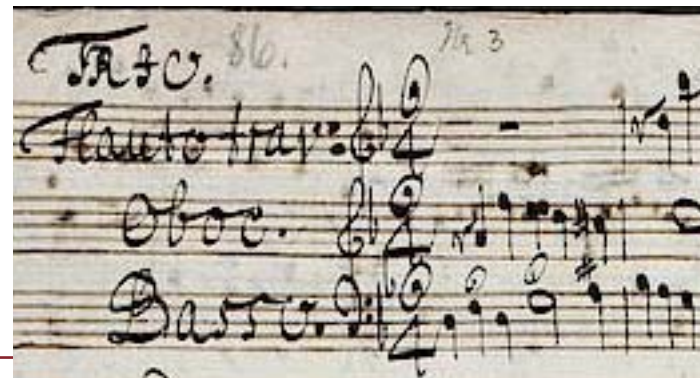 TRIO. 86. No 3
Flauto trav:
Oboe.
Basso.